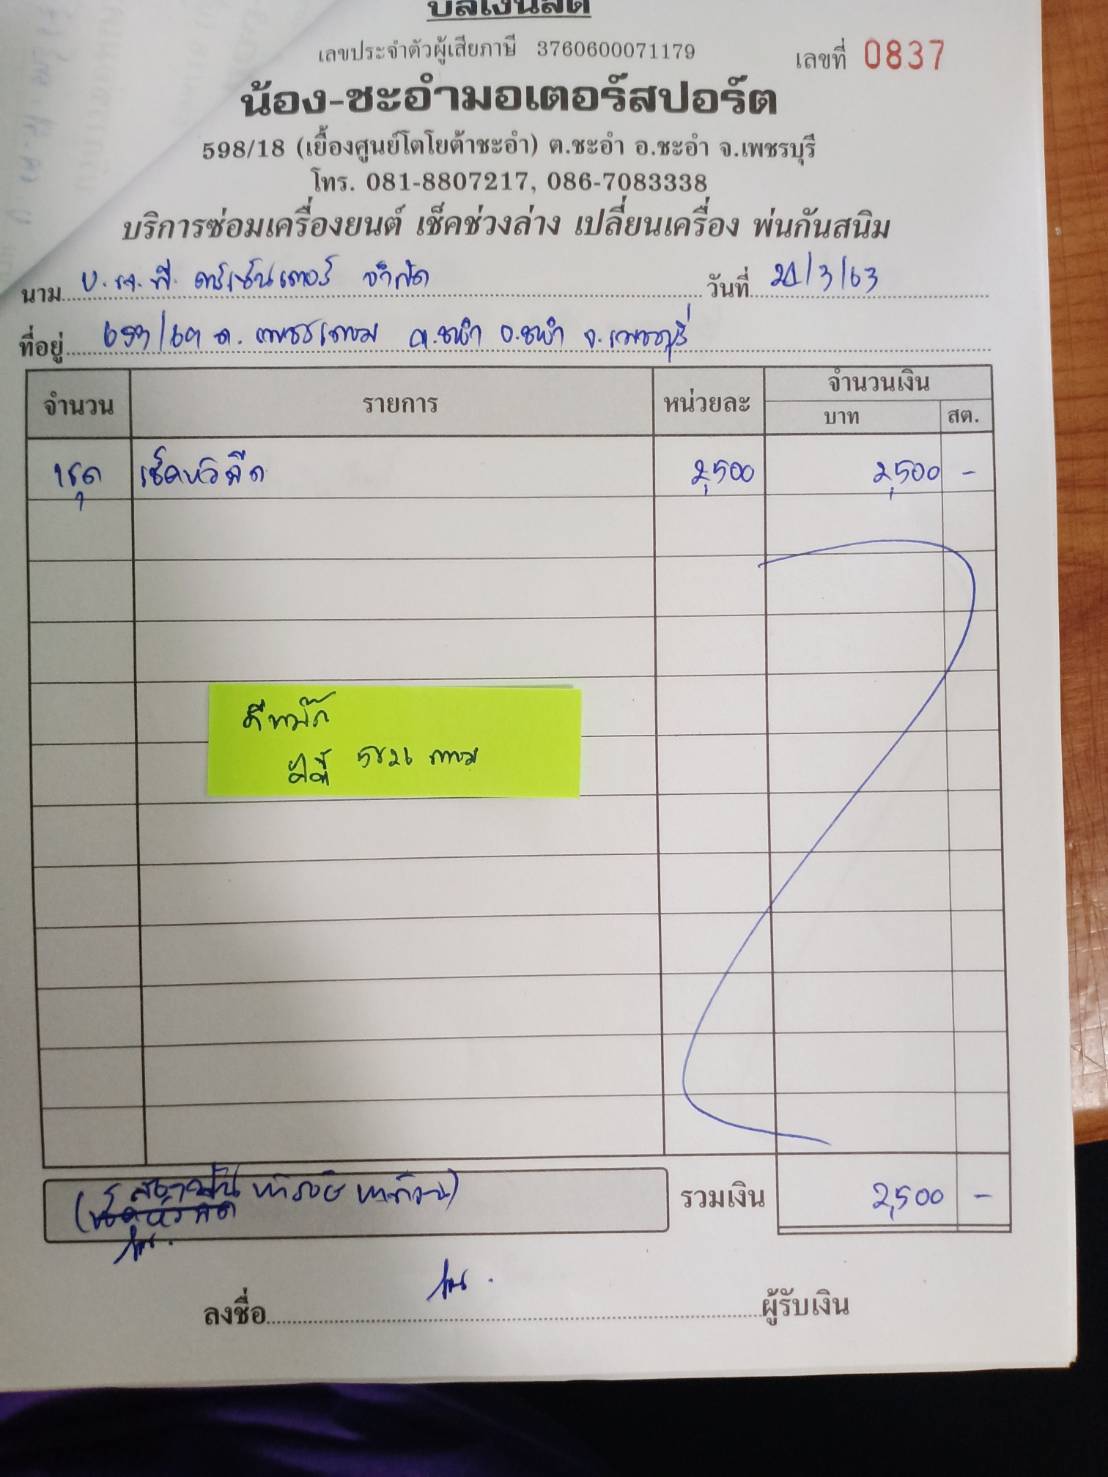 บิลเงินสด
เลขประจำตัวผู้เสียภาษี 3760600071179
เลขที่ 0837
น้อง-ชะอำมอเตอร์สปอร์ต
598/18 (เยื้องศูนย์โตโยต้าชะอำ) ต.ชะอำ อ.ชะอำ จ.เพชรบุรี
โทร. 081-8807217, 086-7083338
บริการซ่อมเครื่องยนต์ เช็คช่วงล่าง เปลี่ยนเครื่อง พ่นกันสนิม
นาม บ. เจ.พี. จำกัด วันที่ 21/3/63
ที่อยู่ ถ. เพชรเกษม ต.ชะอำ อ.ชะอำ จ.เพชรบุรี
จำนวน รายการ หน่วยละ จำนวนเงิน
บาท สต.
1ชุด เช็คหัวฉีด 2,500 2,500 -
(สองพันห้าร้อยบาทถ้วน)
เช็คหัวฉีด
รวมเงิน 2,500 -
ลงชื่อ ผู้รับเงิน